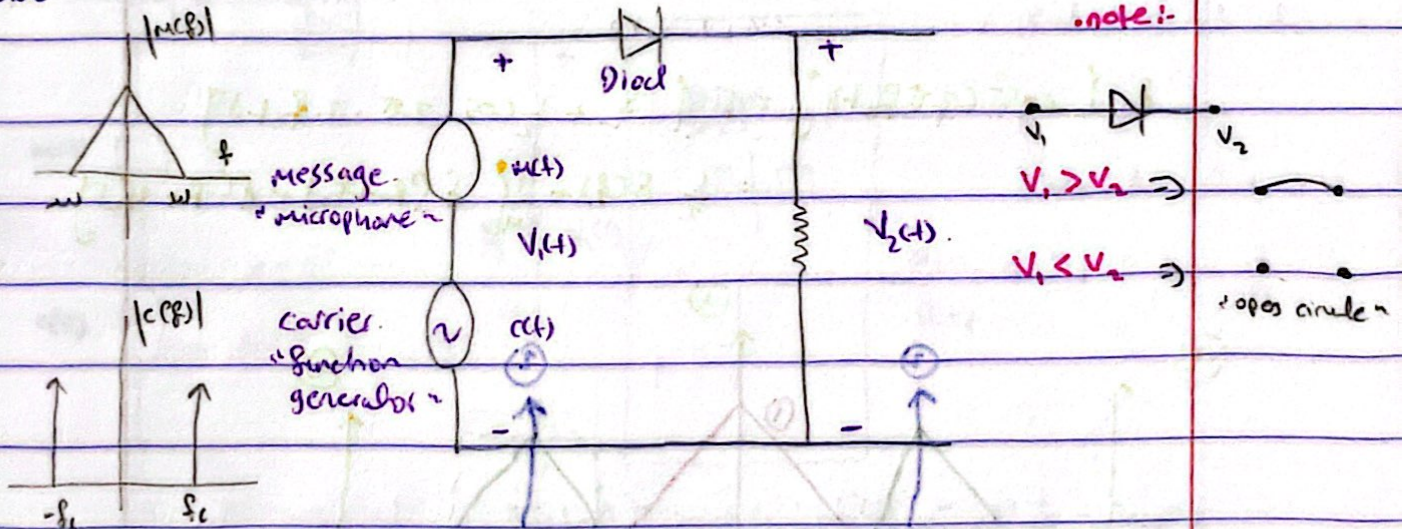 |M(f)|
-w w f
message
"microphone"
|C(f)|
-fc fc
carrier
"function
generator"
+
Diod
m(t)
V₁(t)
c(t)
-
+
V₂(t).
-
.note:-
V₁ V₂
V₁ > V₂ ⇒
V₁ < V₂ ⇒
"opos circule"